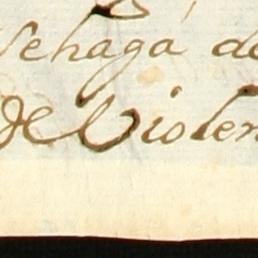 Sehaga de
de Violen